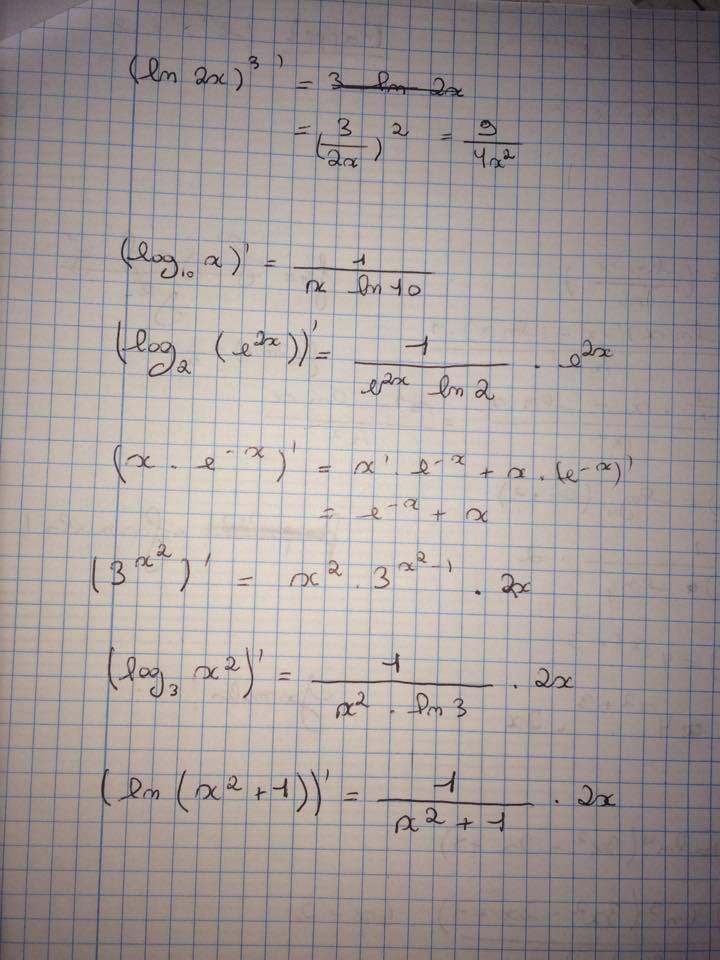 (ln 2x)³ ' = 3 ln 2x
= (3/2x)² = 9/4x²
(log₁₀ x)' = 1/(x ln 10)
(log₂ (e²ˣ))' = 1/(e²ˣ ln 2) · e²ˣ
(x · e⁻ˣ)' = x' · e⁻ˣ + x · (e⁻ˣ)'
= e⁻ˣ + x
(3^x²)' = x² · 3^(x²-1) · 2x
(log₃ x²)' = 1/(x² · ln 3) · 2x
(ln (x² + 1))' = 1/(x² + 1) · 2x